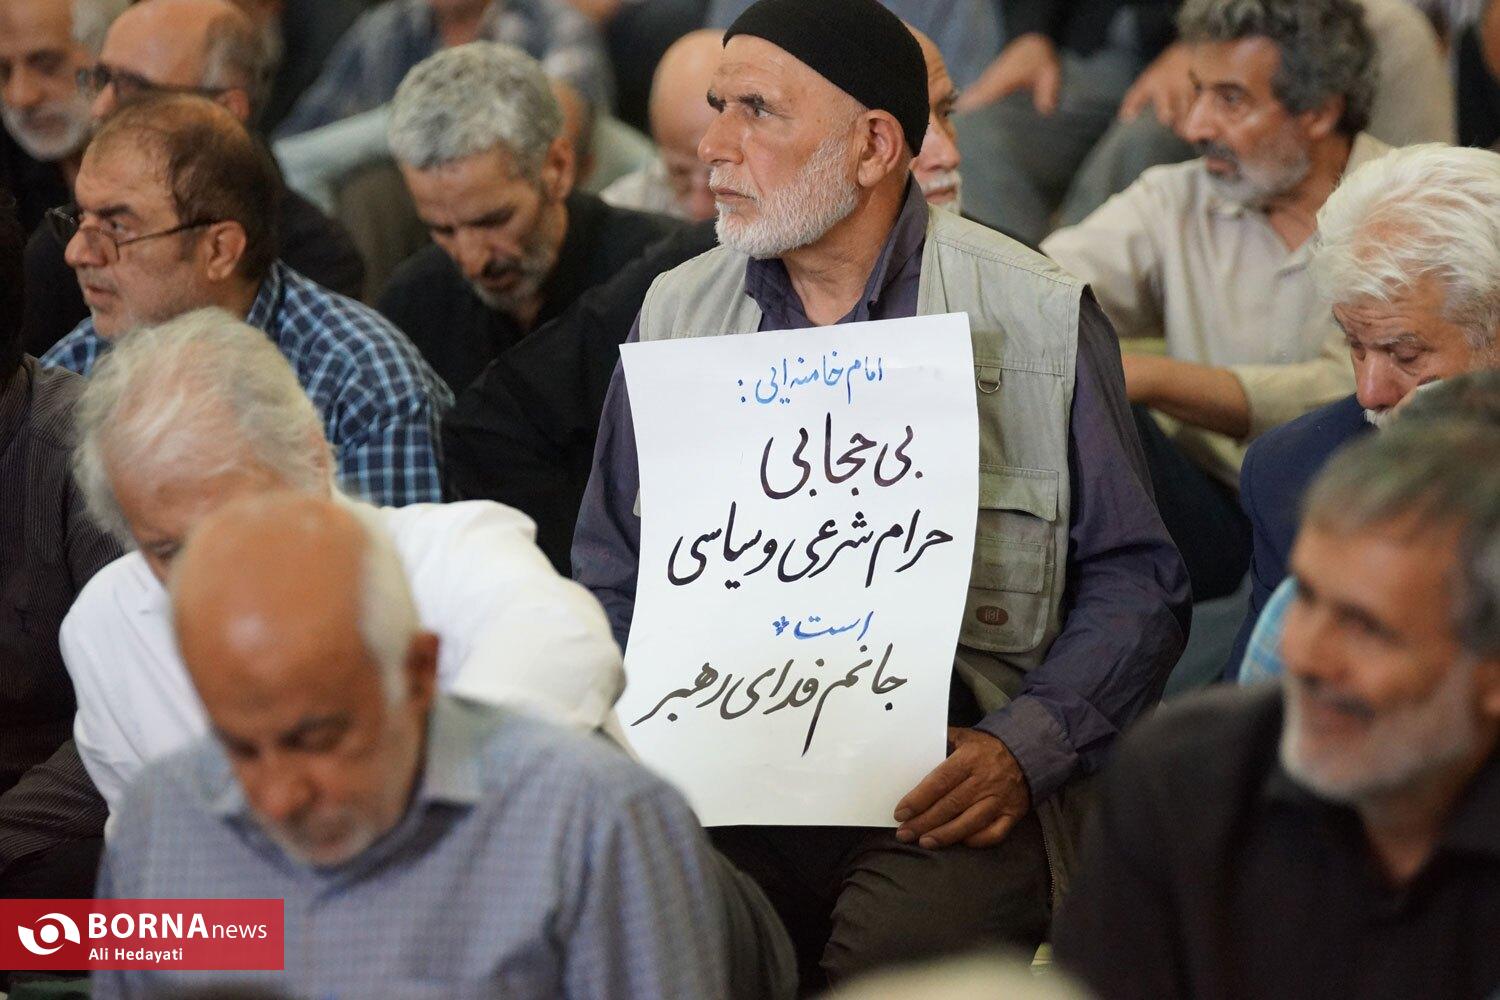 امام خامنه‌ایی :
بی حجابی
حرام شرعی و سیاسی
است *
جانم فدای رهبر
BORNAnews
Ali Hedayati